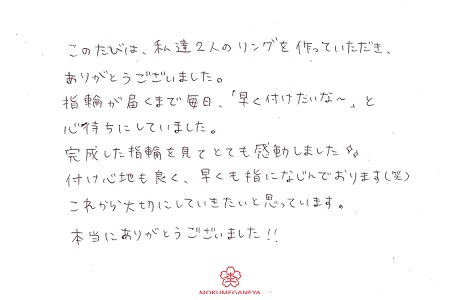 このたびは、私達2人のリングを作っていただき、
ありがとうございました。
指輪が届くまで毎日、「早く付けたいな～」と
心待ちにしていました。
完成した指輪を見てとても感動しました
付け心地も良く、早くも指になじんでおります(笑)
これから大切にしていきたいと思っています。
本当にありがとうございました!!
MOKUMEGANEYA